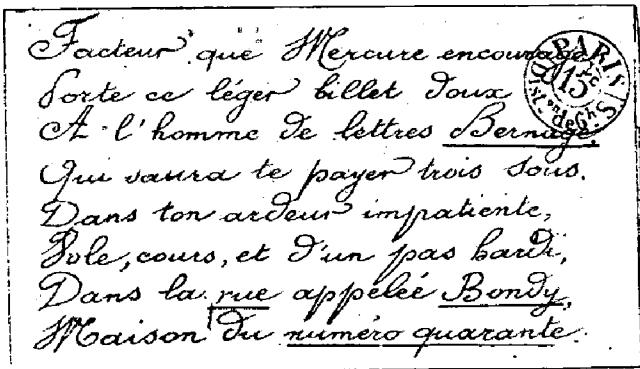 Facteur que Mercure encourage
Porte ce léger billet doux
A l'homme de lettres Bernage,
Qui saura te payer trois sous.
Dans ton ardeur impatiente,
Vole, cours, et d'un pas hardi,
Dans la rue appelée Bondy,
Maison du numéro quarante.
PARIS
15